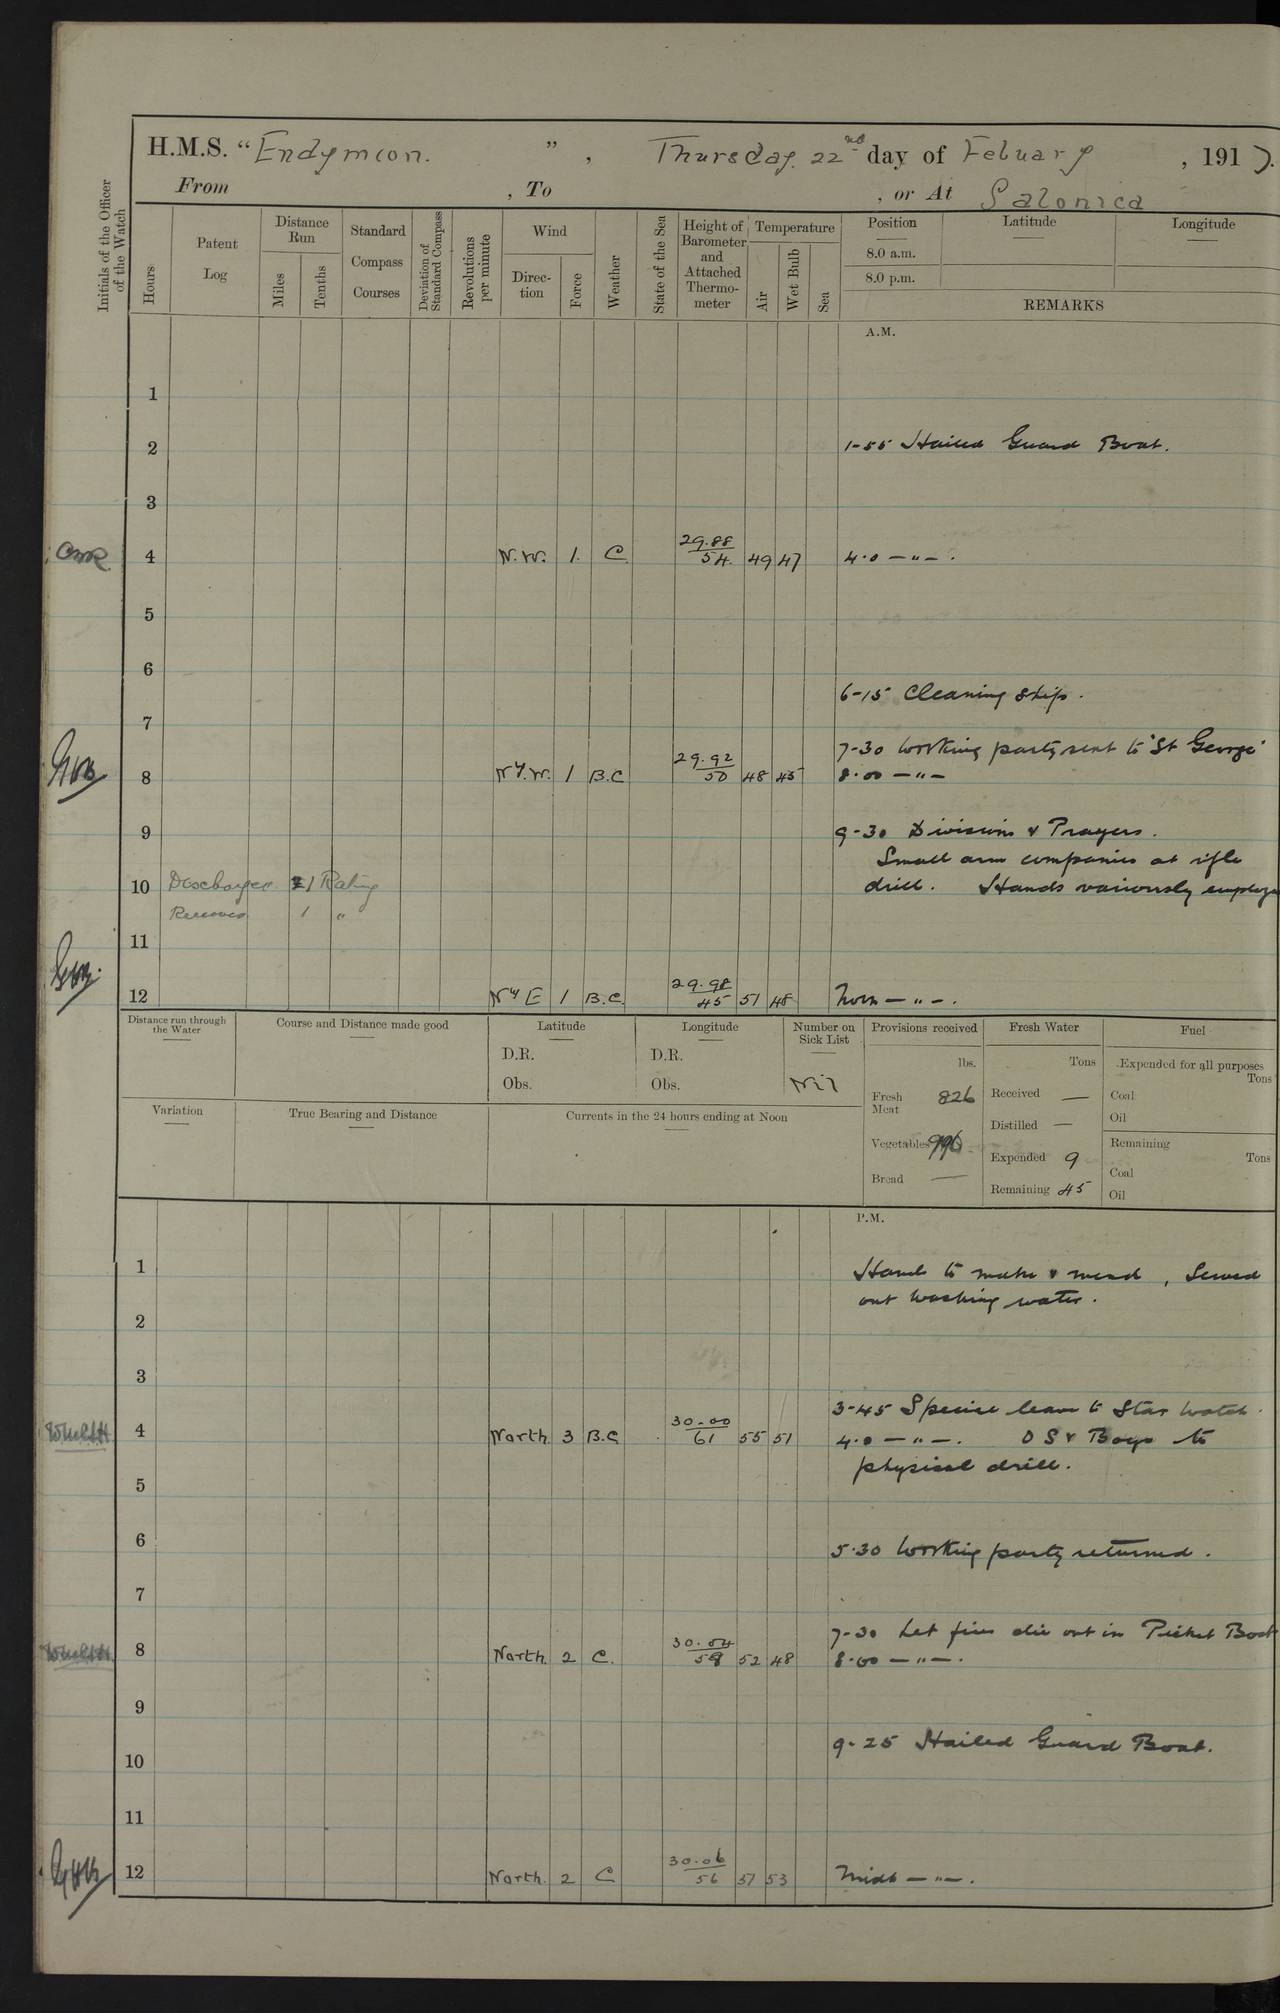 H.M.S. "Endymion. ", Thursday. 22nd day of Febuary, 1917.
From , To , or At Salonica
Initials of the Officer of the Watch
Hours
Patent Log
Distance Run
Miles
Tenths
Standard Compass Courses
Deviation of Standard Compass
Revolutions per minute
Wind
Direction
Force
Weather
State of the Sea
Height of Barometer and Attached Thermometer
Temperature
Air
Wet Bulb
Sea
Position Latitude Longitude
8.0 a.m.
8.0 p.m.
REMARKS
A.M.
1
2 1-55 Hailed Guard Boat.
3
4 N.W. 1. C 29.88 54. 49 47 4.0 — " — .
5
6
6-15 Cleaning Ship.
7
7-30 Working party sent to "St George"
8 Nly.W. 1 B.C 29.92 50 48 45 8.00 — " —
9 9-30 Divisions & Prayers.
Small arm companies at rifle
10 Discharged 1 Rating drill. Hands variously employed
Received 1 "
11
12 Nly E 1 B.C. 29.98 45 51 48 Noon — " — .
Distance run through the Water
Course and Distance made good
Latitude
D.R.
Obs.
Longitude
D.R.
Obs.
Number on Sick List
Nil
Variation
True Bearing and Distance
Currents in the 24 hours ending at Noon
Provisions received
lbs.
Fresh Meat 826
Vegetables
Bread —
Fresh Water
Tons
Received —
Distilled —
Expended 9
Remaining 45
Fuel
Expended for all purposes
Tons
Coal
Oil
Remaining
Tons
Coal
Oil
P.M.
1 Hands to make & mend, Served
out washing water.
2
3
3-45 Special leave to Star Watch.
4 North. 3 B.C. 30.00 61 55 51 4.0 — " — . O S & Boys to
physical drill.
5
6 5.30 Working party returned.
7
7-30 Let fires die out in Picket Boat
8 North. 2 C. 30.04 58 52 48 8.00 — " — .
9
9-25 Hailed Guard Boat.
10
11
12 North. 2 C 30.06 56 51 53 Midt — " — .